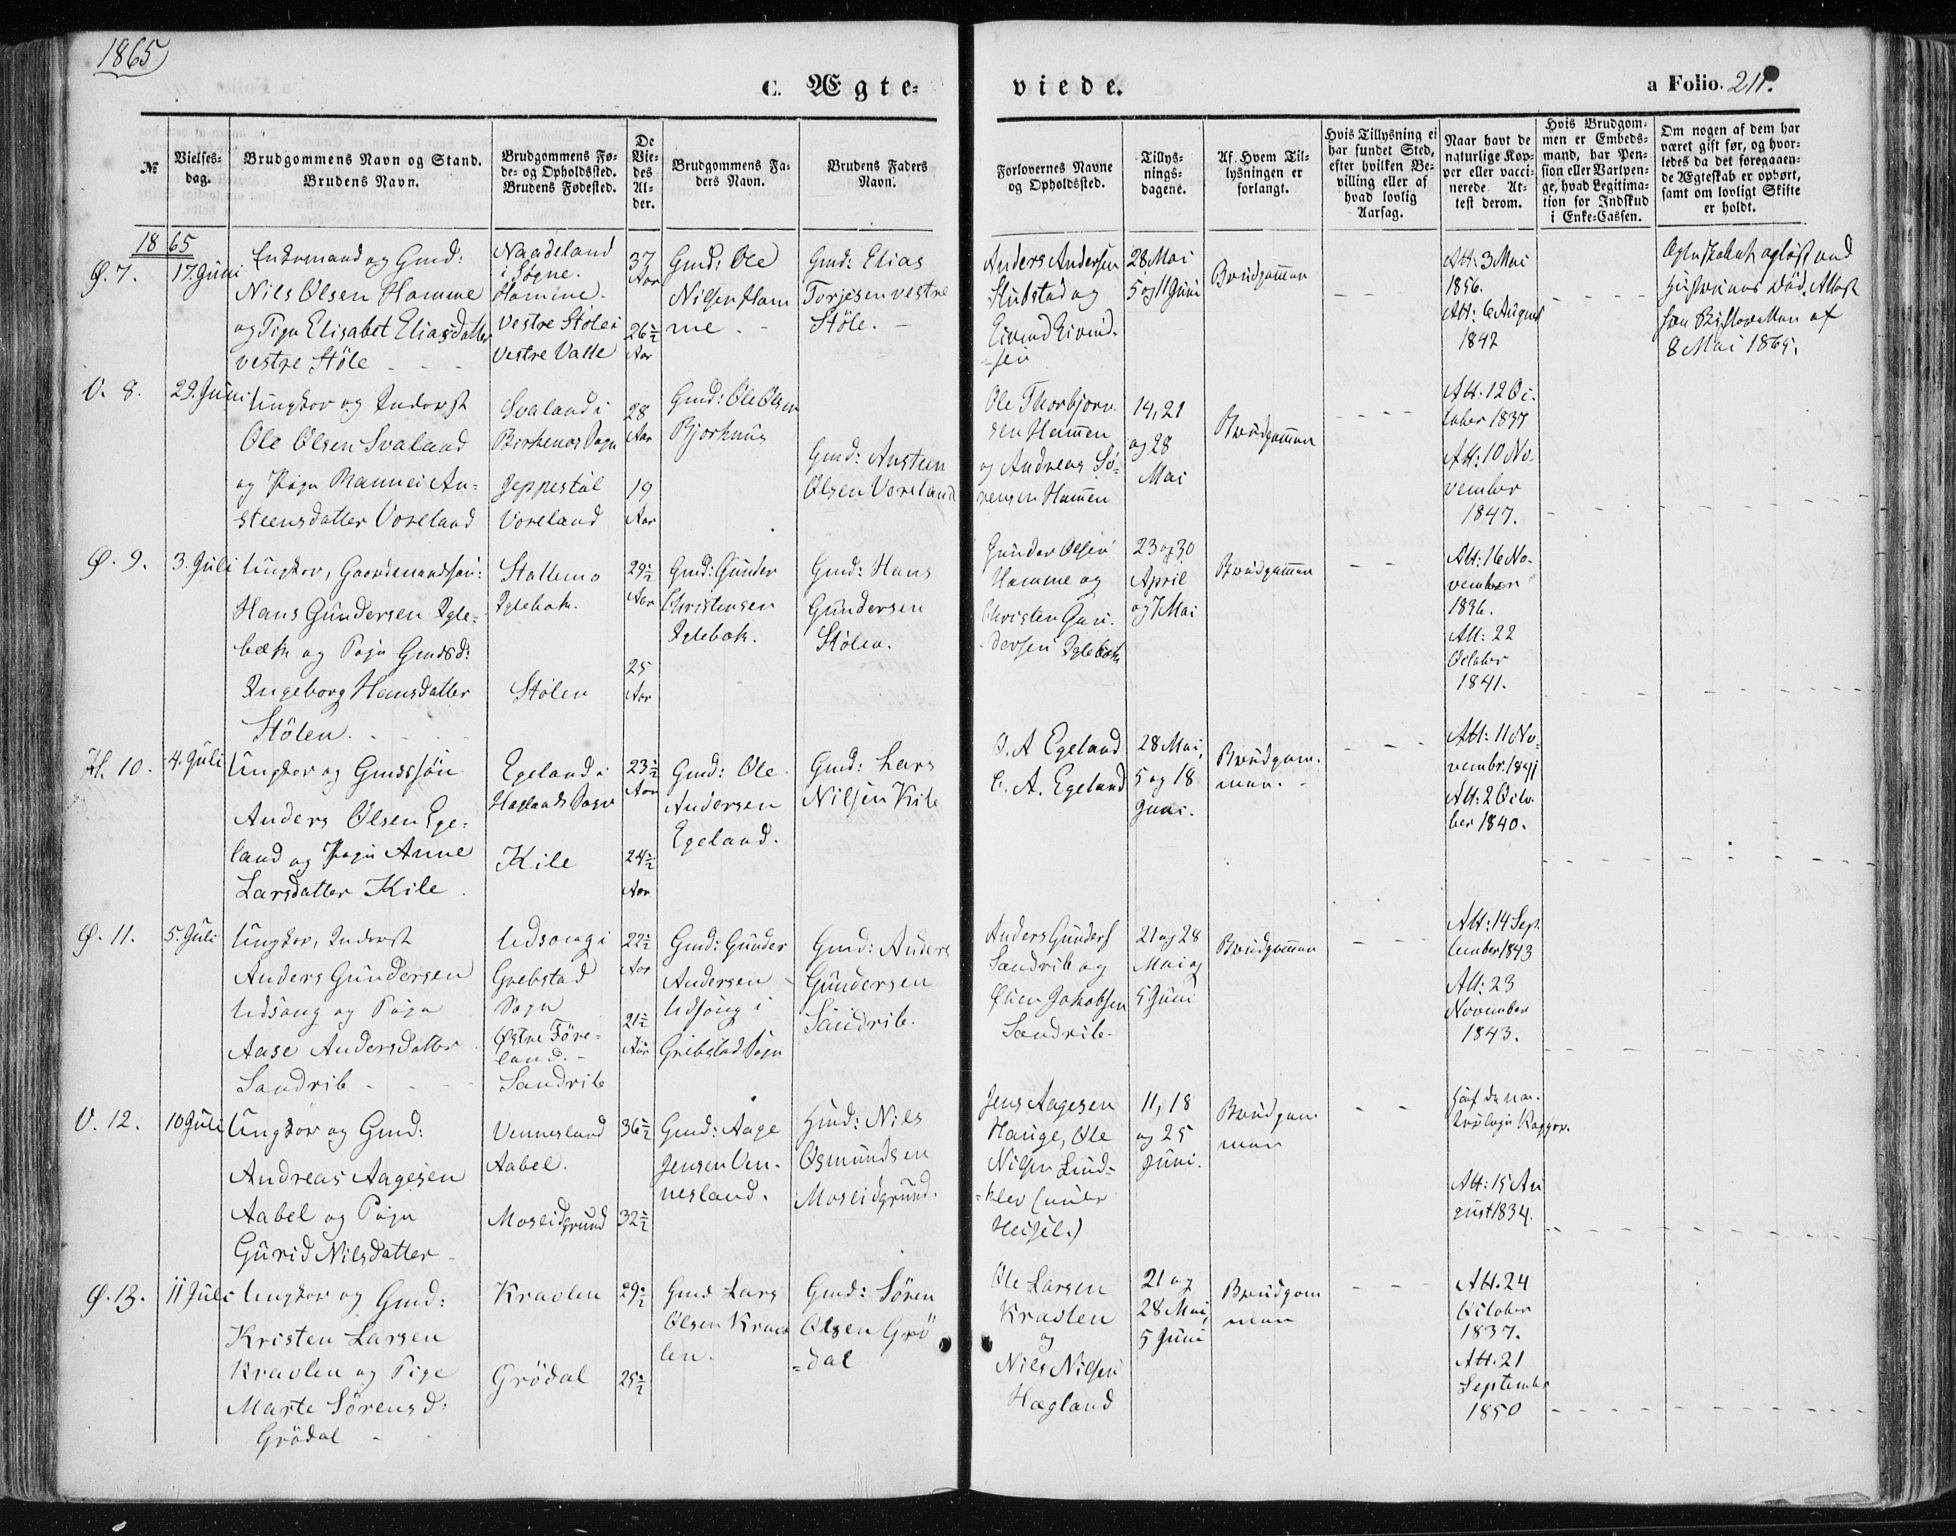 1865
C. Ægte-
viede.
a Folio. 211.
№
Vielses-
dag.
Brudgommens Navn og Stand.
Brudens Navn.
Brudgommens Fø-
de- og Opholdssted.
Brudens Fødested.
De
Vie-
des
Al-
der.
Brudgommens Fa-
ders Navn.
Brudens Faders
Navn.
Forlovernes Navne
og Opholdssted.
Tillys-
nings-
dagene.
Af Hvem Til-
lysningen er
forlangt.
Hvis Tillysning ei
har fundet Sted,
efter hvilken Be-
villing eller af
hvad lovlig
Aarsag.
Naar havt de
naturlige Kop-
per eller vacci-
nerede At-
test derom.
Hvis Brudgom-
men er Embeds-
mand, har Pen-
sion eller Vartpen-
ge, hvad Legitima-
tion for Indskud
i Enke-Cassen.
Om nogen af dem har
været gift før, og hvor-
ledes da det foregaaen-
de Ægteskab er ophørt,
samt om lovligt Skifte
er holdt.
1865
Ø. 7.
17. Juni
Enkemand og Gmd:
Nils Olsen Homme
og Pige Elisabet Eliasdatter
vestre Støle
Naadeland
i Søgne.
Homme.
Vestre Støle i
Vestre Valle
37
Aar
26½
Aar
Gmd: Ole
Nilsen Hom
me
Gmd: Elias
Torjesen vestre
Støle.
Anders Andersen
Stubstad og
Eivind Eivind-
sen
28 Mai
5 og 11 Juni
Brudgommen
Att: 3 Mai
1856.
Att: 6 August
1842
Ægteskabet opløst ved
Hustruens Død. Attest
fra Skifteretten af
8 Mai 1865.
V. 8.
29. Juni
Ungkar og Inderst
Ole Olsen Svaland
og Pige Rannei An-
steensdatter Voreland
Svaland i
Birkenes Sogn
Jeppestøl
Voreland
28
Aar
19
Aar
Gmd: Ole Olsen
Bjorknus
Gmd: Ansteen
Olsen Voreland
Ole Thorbjorn
sen Hammen
og Andreas Sö-
rensen Hammen
14, 21
og 28
Mai
Brudgommen
Att: 12 Oc-
tober 1837
Att: 10 No-
vember
1847.
Ø. 9.
3. Juli
Ungkar, Gaardmandssøn:
Hans Gundersen Igle-
bæk og Pige Gmdsd:
Ingeborg Hansdatter
Stölen.
Stallemo
Iglebæk.
Stølen
29½
Aar
25
Aar
Gmd: Gunder
Christensen
Iglebæk.
Gmd: Hans
Gundersen
Stølen.
Gunder Olsen
Homme og
Christen Gun-
dersen Iglebæk
23 og 30
April
og 7 Mai
Brudgommen
Att: 16 No-
vember
1836.
Att: 22
October
1841.
H. 10.
4. Juli
Ungkar og Gmdssøn
Anders Olsen Ege-
land og Pige Anne
Larsdatter Kile
Egeland i
Hægelands Sogn
Kile
23½
Aar
24½
Aar
Gmd: Ole
Andersen
Egeland.
Gmd: Lars
Nilsen Kile
O. A Egeland
C. A. Egeland
28 Mai,
5 og 18
Juni.
Brudgom-
men.
Att: 11 No-
vembr. 1841
Att: 2 Octo-
ber 1840.
Ø. 11.
5. Juli
Ungkar, Inderst
Anders Gundersen
Udsong og Pige
Aase Andersdatter
Sandrib
Udsong i
Greibstad
Sogn
Østre Före-
land.
Sandrib
22½
Aar
21½
Aar
Gmd: Gunder
Andersen
Udsong i
Greibstad Sogn
Gmd: Anders
Gundersen
Sandrib.
Anders Gunders
Sandrib og
Øuen Jakobsen
Sandrib.
21 og 28
Mai og
5 Juni
Brudgommen
Att: 14 Sept
tember 1843
Att: 23
November
1843.
V. 12.
10 Juli
Ungkar og Gmd:
Andreas Aagesen
Aabel og Pige
Gurid Nilsdatter
Vennesland
Aabel.
Moseidgrund
36½
32½
Gmd: Aage
Jensen Ven-
nesland.
Hmd: Nils
Osmundsen
Moseidgrund.
Jens Aagesen
Hauge, Ole
Nilsen Lind-
klev (under
Heisel.)
11, 18
og 25
Juni.
Brudgom
men
Haft de na-
turlige Kopper.
Att: 15 Au
gust 1834.
Ø. 13.
11 Juli
Ungkar og Gmd:
Kristen Larsen
Kravlen og Pige
Marte Sörensd:
Grödal
Kravlen
Grödal
29½
25½
Gmd Lars
Olsen Krav
len.
Gmd: Sören
Olsen Grö
dal
Ole Larsen
Kravlen
og
Nils Nilsen
Hægland
21 og
28 Mai,
5 Juni
Brudgom
men
Att. 24
October
1837.
Att. 21
September
1850